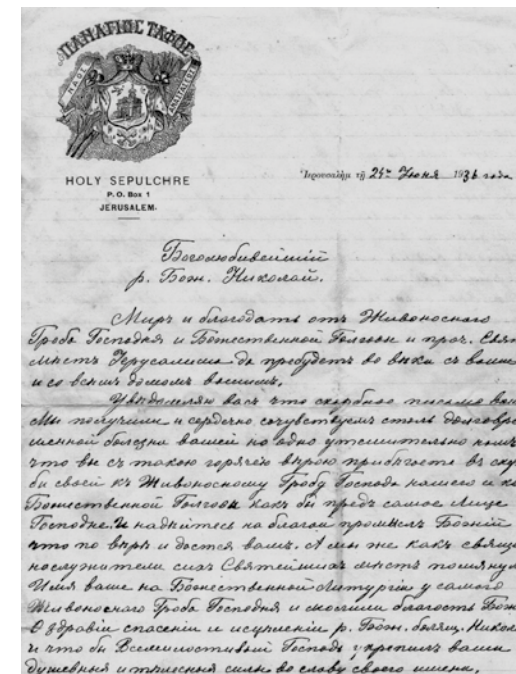 ΠΑΝΑΓΙΟΣ ΤΑΦΟΣ
HOLY SEPULCHRE
P.O. Box 1
JERUSALEM.
Ἱερουσαλὴμ τῇ 24го Июня 1936 года
Боголюбивейшій
р. Бож. Николай.
Миръ и благодать отъ Живоноснаго
Гроба Господня и Божественной Голгоѳы и проч. Свят
мѣстъ Іерусалима да пребудетъ во вѣки съ вами
и со всѣмъ домомъ вашимъ.
Увѣдомляю васъ что скорбное письмо ваше
Мы получили и сердечно сочувствуемъ столь долговре
менной болезни вашей но одно утешительно
что вы съ такою горячею вѣрою прибѣгаете въ скор
би своей къ Живоносному Гробу Господа нашего и ко
Божественной Голгоѳы какъ бы предъ самое лице
Господне. И надейтесь на благой промыслъ Божій
что по вѣрѣ и дастся вамъ. А мы же какъ свяще
нослужители сихъ Святейшихъ мѣстъ помянули
Имя ваше на Божественной Литургіи у самого
Живоноснаго Гроба Господня и молили благость Бож
О здравіи спасеніи и исцѣленіи р. Бож. болящ. Никол
и что бы Всемилостивый Господь укрепилъ ваши
душевныя и тѣлесныя силы во славу своего имени,